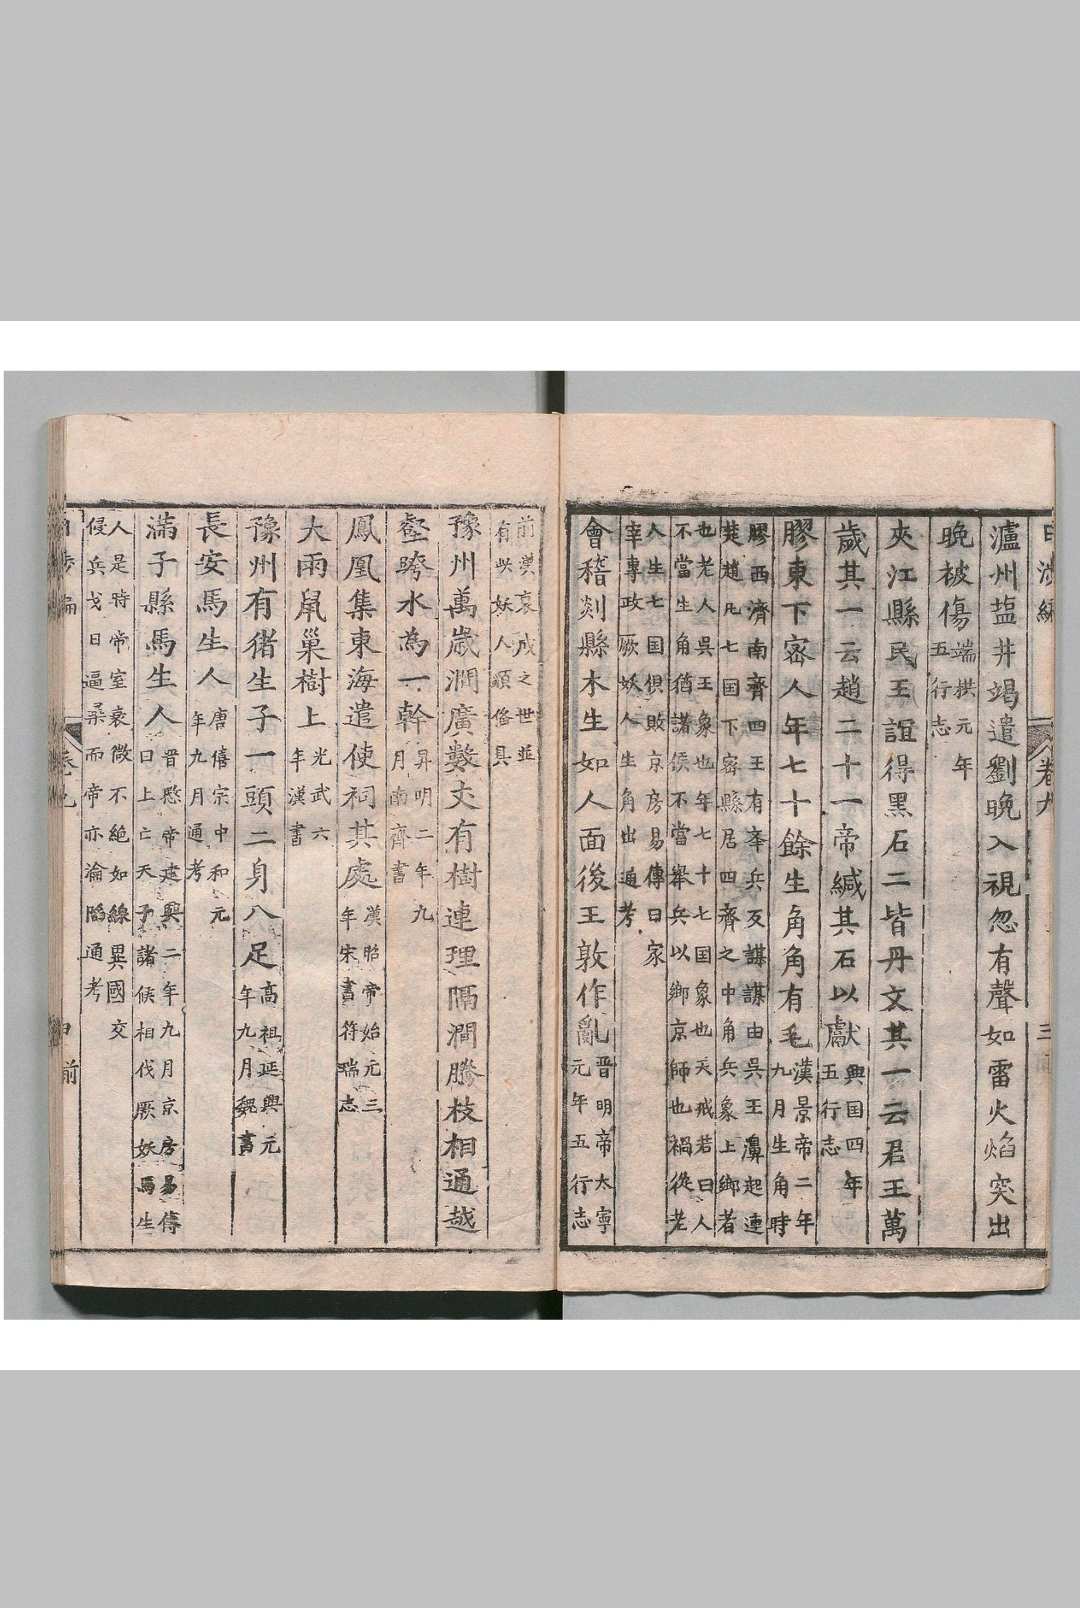 瀘州塩井竭遣劉晚入視忽有聲如雷火焰突出
晚被傷端拱元年
五行志
夾江縣民王誼得黑石二皆丹文其一云君王萬
歲其一云趙二十一帝緘其石以獻興国四年
五行志
膠東下宻人年七十餘生角角有毛漢景帝二年
九月生角時
膠西濟南齊四王有举兵反謀謀由吳王濞起連
楚趙凡七囯下宻縣居四齊之中角兵象上鄉者
也老人吳王象也年七十七国象也天戒若曰人
不當生角猶諸侯不當舉兵以鄉京師也禍從老
人生七国俱敗京房易傳曰家
宰專政厥妖人生角出通考
會稽剡縣木生如人面後王敦作亂晋明帝大寧
元年五行志
前漢哀成之世並
有此妖人頭俻具
豫州萬歲澗廣數丈有樹連理隔澗騰枝相通越
壑跨水為一幹昇明二年九
月南齊書
鳳凰集東海遣使祠其處漢昭帝始元三
年宋書符瑞志
大雨鼠巢樹上光武六
年漢書
豫州有猪生子一頭二身八足高祖延興元
年九月魏書
長安馬生人唐僖宗中和元
年九月通考
滿子縣馬生人晋愍帝建興二年九月京房易傳
曰上亡天子諸候相伐厥妖馬生
人是時帝室衰微不絶如線異國交
侵兵戈日逼尋而帝亦淪陷通考